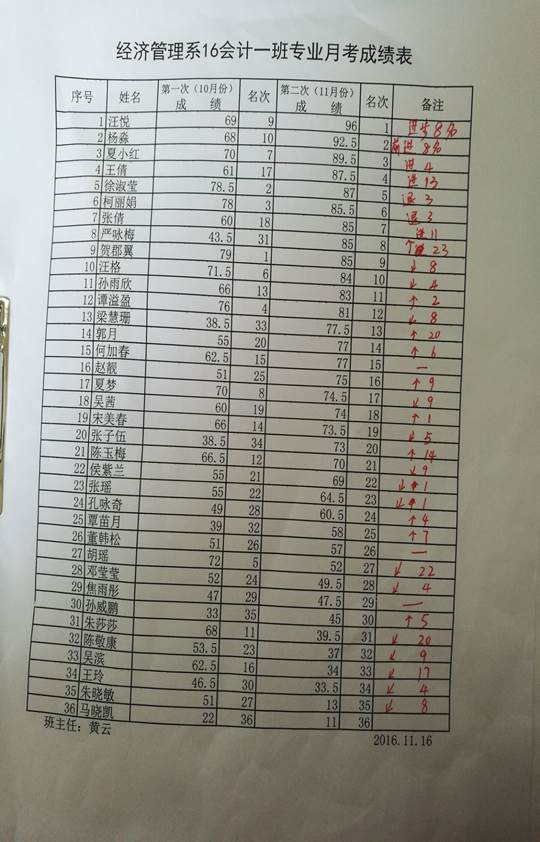 经济管理系16会计一班专业月考成绩表
序号 姓名 第一次（10月份）成 绩 名次 第二次（11月份）成 绩 名次 备注
1 汪悦 69 9 96 1 进步8名
2 杨淼 68 10 92.5 2 前进8名
3 夏小红 70 7 89.5 3 进4
4 王倩 61 17 87.5 4 进13
5 徐淑莹 78.5 2 87 5 退3
6 柯丽娟 78 3 85.5 6 退3
7 张倩 60 18 85 7 进11
8 严咏梅 43.5 31 85 8 ↑23
9 贺郡翼 79 1 85 9 ↓8
10 汪格 71.5 6 84 10 ↓4
11 孙雨欣 66 13 83 11 ↑2
12 谭溢盈 76 4 81 12 ↓8
13 梁慧珊 38.5 33 77.5 13 ↑20
14 郭月 55 20 77 14 ↑6
15 何加春 62.5 15 77 15 —
16 赵靓 51 25 75 16 ↑9
17 夏梦 70 8 74.5 17 ↓9
18 吴茜 60 19 74 18 ↑1
19 宋美春 66 14 73.5 19 ↓5
20 张子伍 38.5 34 73 20 ↑14
21 陈玉梅 66.5 12 70 21 ↓9
22 侯紫兰 55 21 69 22 ↓1
23 张瑶 55 22 64.5 23 ↓1
24 孔咏奇 49 28 60.5 24 ↑4
25 覃苗月 39 32 58 25 ↑7
26 董韩松 51 26 57 26 —
27 胡瑶 72 5 52 27 ↓22
28 邓莹莹 52 24 49.5 28 ↓4
29 焦雨彤 47 29 47.5 29 —
30 孙威鹏 33 35 45 30 ↑5
31 朱莎莎 68 11 39.5 31 ↓20
32 陈敬康 53.5 23 37 32 ↓9
33 吴滨 62.5 16 34 33 ↓17
34 王玲 46.5 30 33.5 34 ↓4
35 朱晓敏 51 27 13 35 ↓8
36 马晓凯 22 36 11 36
班主任：黄云 2016.11.16